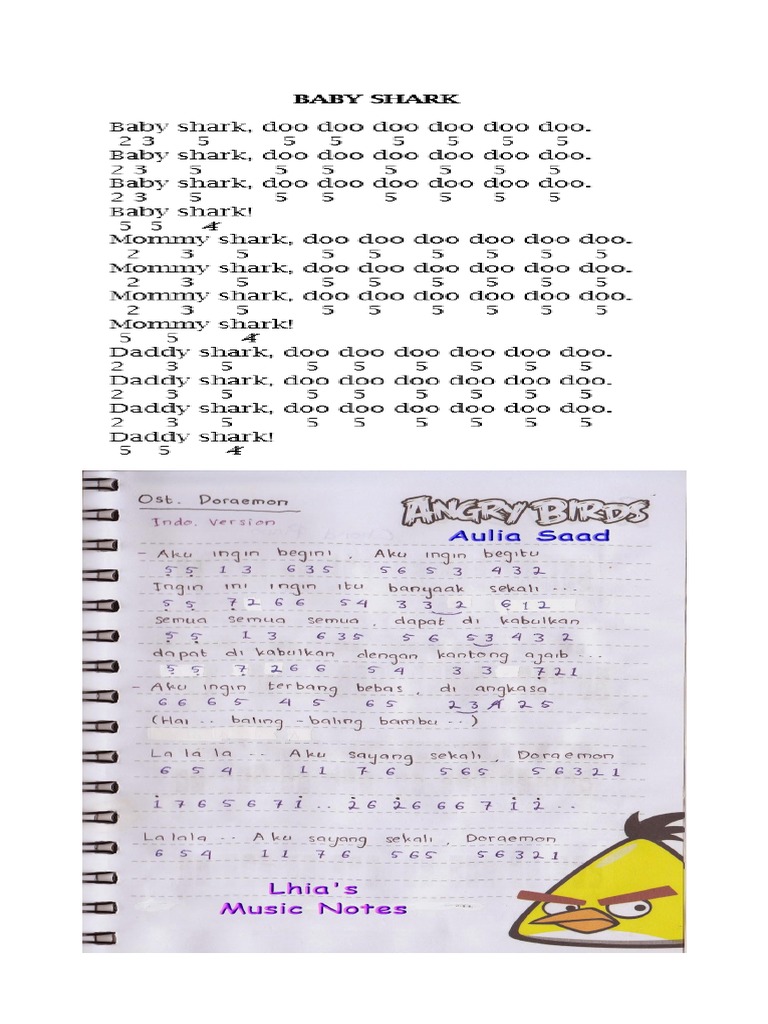 BABY SHARK
Baby shark, doo doo doo doo doo doo.
2 3 5 5 5 5 5 5 5
Baby shark, doo doo doo doo doo doo.
2 3 5 5 5 5 5 5 5
Baby shark, doo doo doo doo doo doo.
2 3 5 5 5 5 5 5 5
Baby shark!
5 5 4
Mommy shark, doo doo doo doo doo doo.
2 3 5 5 5 5 5 5 5
Mommy shark, doo doo doo doo doo doo.
2 3 5 5 5 5 5 5 5
Mommy shark, doo doo doo doo doo doo.
2 3 5 5 5 5 5 5 5
Mommy shark!
5 5 4
Daddy shark, doo doo doo doo doo doo.
2 3 5 5 5 5 5 5 5
Daddy shark, doo doo doo doo doo doo.
2 3 5 5 5 5 5 5 5
Daddy shark, doo doo doo doo doo doo.
2 3 5 5 5 5 5 5 5
Daddy shark!
5 5 4
Ost. Doraemon
ANGRY BIRDS
Indo. Version
Aulia Saad
- Aku ingin begini, Aku ingin begitu
5̣ 5̣ 1 3 6 3 5 5 6 5 3 4 3 2
Ingin ini ingin itu banyaak sekali ...
5̣ 5̣ 7̣ 2 6 6 5 4 3 3 2 6̣ 1 2
semua semua semua, dapat di kabulkan
5̣ 5̣ 1 3 6 3 5 5 6 5 3 4 3 2
dapat di kabulkan dengan kantong ajaib ...
5̣ 5̣ 7̣ 2 6 6 5 4 3 3 7̣ 2 1
- Aku ingin terbang bebas, di angkasa
6 6 6 5 4 5 6 5 2 3 4 2 5
(Hai .. baling-baling bambu ..)
La la la .. Aku sayang sekali, Doraemon
6 5 4 1 1 7 6 5 6 5 5 6 3 2 1
1̇ 7 6 5 6 7 1̇ .. 2̇ 6 2̇ 6 6 6 7 1̇ 2̇ ..
Lalala .. Aku sayang sekali, Doraemon
6 5 4 1 1 7 6 5 6 5 5 6 3 2 1
Lhia's
Music Notes